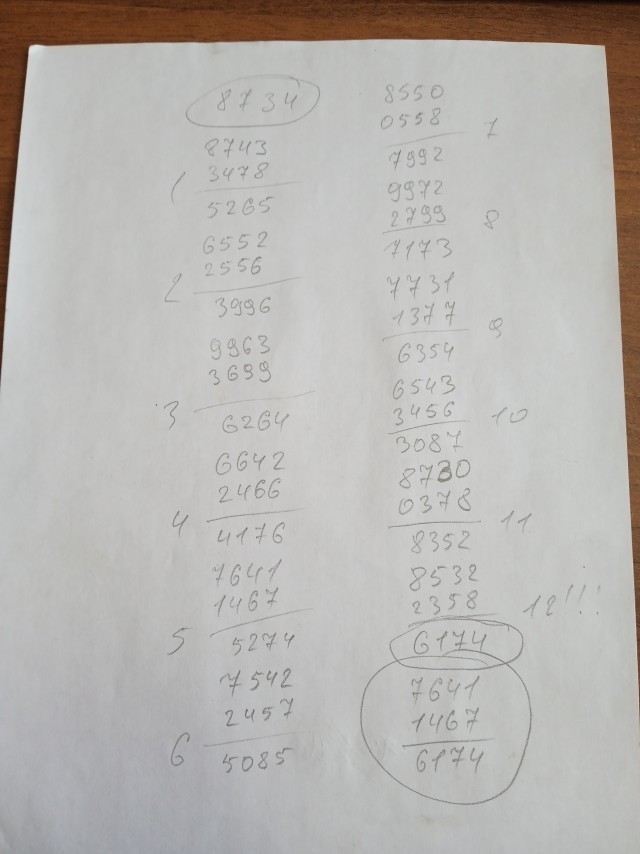 8734
8743
1 3478
5265
6552
2556
2
3996
9963
3699
3
6264
6642
2466
4
4176
7641
1467
5
5274
7542
2457
6
5085
8550
0558
7
7992
9972
2799 8
7173
7731
1377 9
6354
6543
3456 10
3087
8730
0378
11
8352
8532
2358 12!!!
6174
7641
1467
6174